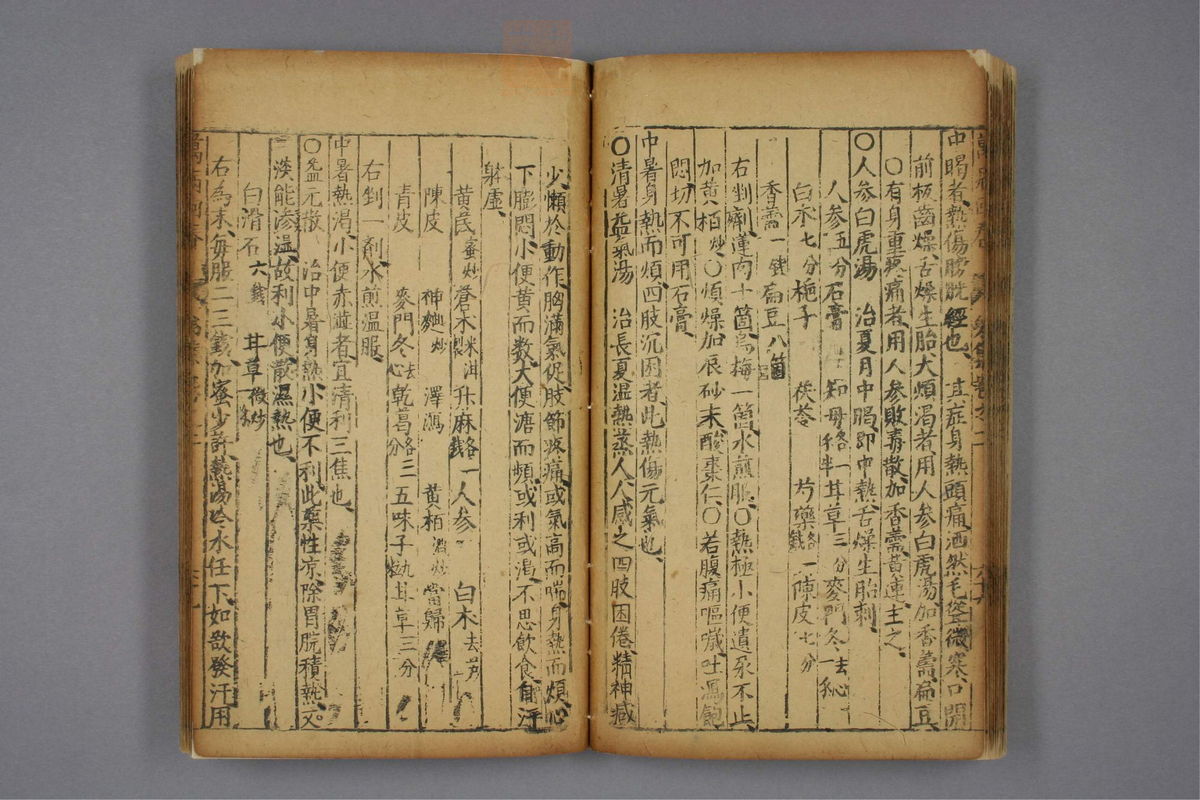 中暍者熱傷膀胱經也 其症身熱頭痛洒然毛聳微寒口開
前板齒燥舌燥生胎大煩渴者用人參白虎湯加香薷扁豆
〇有身重疼痛者用人參敗毒散加香薷黃連主之
〇人參白虎湯 治夏月中暍即中熱舌燥生胎刺
人參五分石膏 知母各一錢半甘草三分麥門冬去心一
白朮七分梔子 茯苓 芍藥各一錢陳皮七分
香薷一錢扁豆八箇
右剉劑蓮肉十箇烏梅一箇水煎服〇熱極小便遺尿不止
加黃栢炒〇煩燥加辰砂末酸棗仁〇若腹痛嘔噦吐瀉飽
悶切不可用石膏
中暑身熱而煩四肢沉困者此熱傷元氣也
〇清暑益氣湯 治長夏溫熱蒸人人感之四肢困倦精神減
少懶於動作胸滿氣促肢節疼痛或氣高而喘身熱而煩心
下膨悶小便黃而數大便溏而頻或利或渴不思飲食自汗
躰虛
黃芪蜜炒蒼木米泔製升麻各一錢人參 白木去芦
陳皮 神麴炒 澤瀉 黃栢酒炒當歸
青皮 麥門冬去心乾葛各三分五味子九粒甘草三分
右剉一劑水煎溫服
中暑熱渴小便赤澁者宜清利三焦也
〇益元散 治中暑身熱小便不利此藥性凉除胃脘積熱又
淡能滲溫故利小便散濕熱也
白滑石六錢 甘草微炒一錢
右為末每服二三錢加蜜少許熱湯冷水任下如欲發汗用